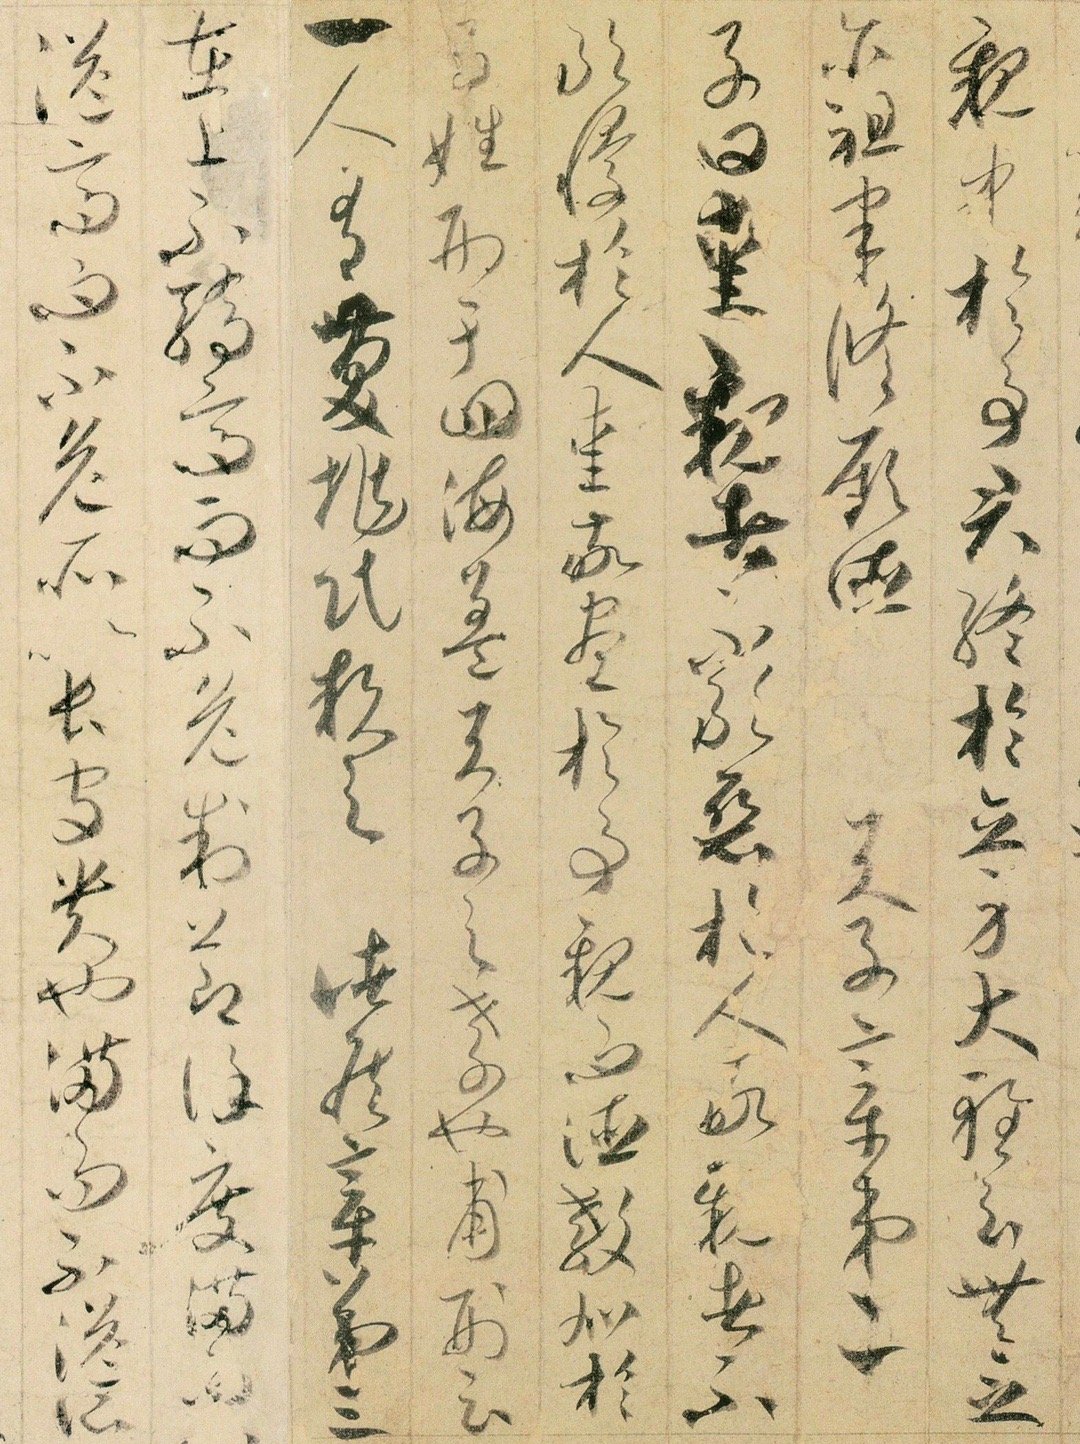 親中於事君終於立身大雅云無念
尔祖聿脩厥德　天子章第二
子曰愛親者不敢惡於人敬親者不
敢慢於人愛敬盡於事親而德教加於
百姓刑于四海蓋天子之孝也甫刑云
一人有慶兆民賴之　諸侯章第三
在上不驕高而不危制節謹度滿而不
溢高而不危所以長守貴也滿而不溢所